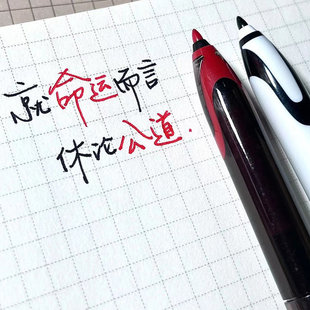 就命运而言
休论公道.